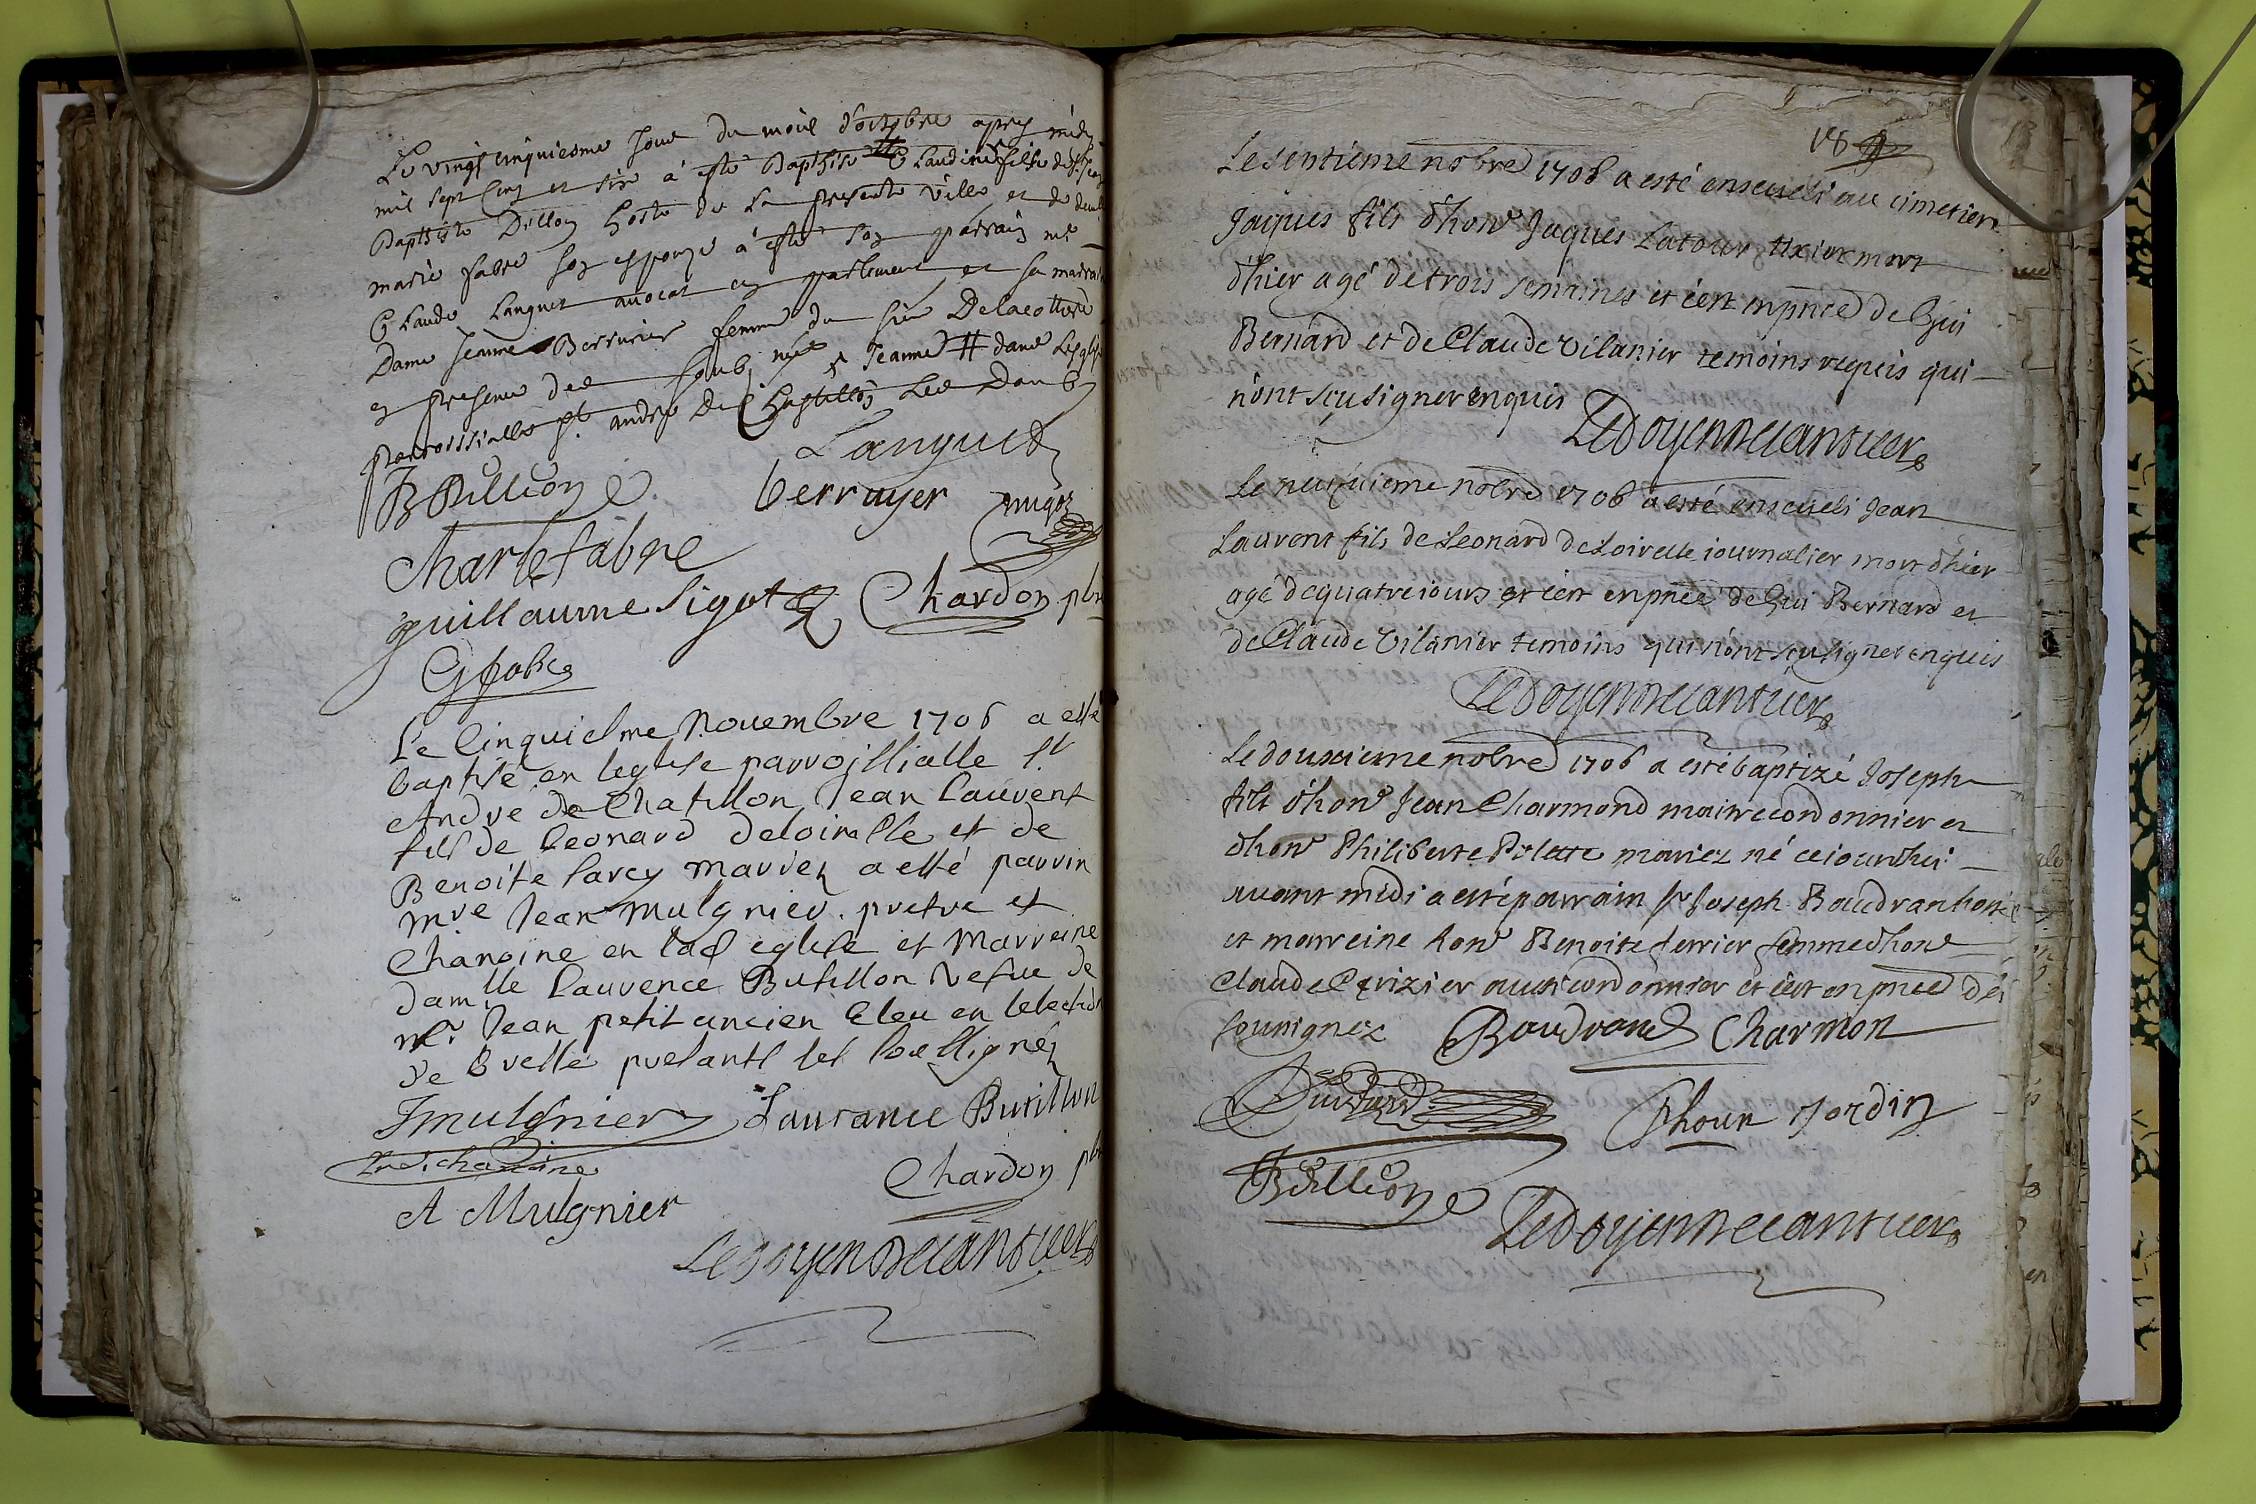 Le vingt cinquiesme Jour du mois d'octobre apres midy
mil sept Cens et six à esté Baptisée Claudine fille de Sr Jean
Baptiste Dillon hoste de La presente Ville et de dam
marie fabre son espouze à esté son parrain mr
Claude Languet auocat en parlement et sa marraine
Dame Jeanne Berruier femme du sieur Delacottiere
en presence des soub nés Jeanne # dans Leglise
parroissialle St andre De Chastillon Les Dan
Languet
BDillion
berruyer
Charle fabre
guillaume Sigot Chardon pbr
Gfabre
Le Cinquiesme Nouembre 1706 a esté
baptisé en leglise parroissialle St
Andre de Chatillon Jean Laurent
fils de Leonard deloiselle et de
Benoite Sarcy marriez a esté parrin
mre Jean Mulgnier pretre et
Chanoine en lad eglise et Marreine
damlle Laurence Butillon Vefue de
Mr Jean petit ancien Eleu en lelection
de Bresse presants les soussignéz
Jmulgnier Laurance Butillon
chanoine
Chardon pbr
A Mulgnier
Ledoyen Decantuer
Le septieme nobre 1706 a esté enseueli au cimetiere
Jaques fils d'honr Jaques Latour tixier mort
d'hier agé de trois semaines et c'est enpnce de Gui
Bernard et de Claude Vilanier temoins requis qui
n'ont sçu signer enquis
Ledoyen Decantuer
Le neufuieme nobre 1706 a esté enseueli Jean
Laurent fils de Leonard de Loiselle iournalier mort d'hier
agé de quatre iours et c'est enpnce de Gui Bernard et
de Claude Vilanier temoins qui n'ont sçu signer enquis
Ledoyen Decantuer
Le douzieme nobre 1706 a esté baptizé Joseph
fils d'honr Jean Charmond maitre cordonnier et
d'honr Philiberte Polette mariez né ce iourd'hui
auant midi a esté parrain sr Joseph Baudran hoste
et marreine honr Benoite ferrier femme d'honr
Claude Cerizier aussi cordonnier et c'est enpnce des
sousignez Baudrand Charmon
Jordin
BDillion
Ledoyen Decantuer